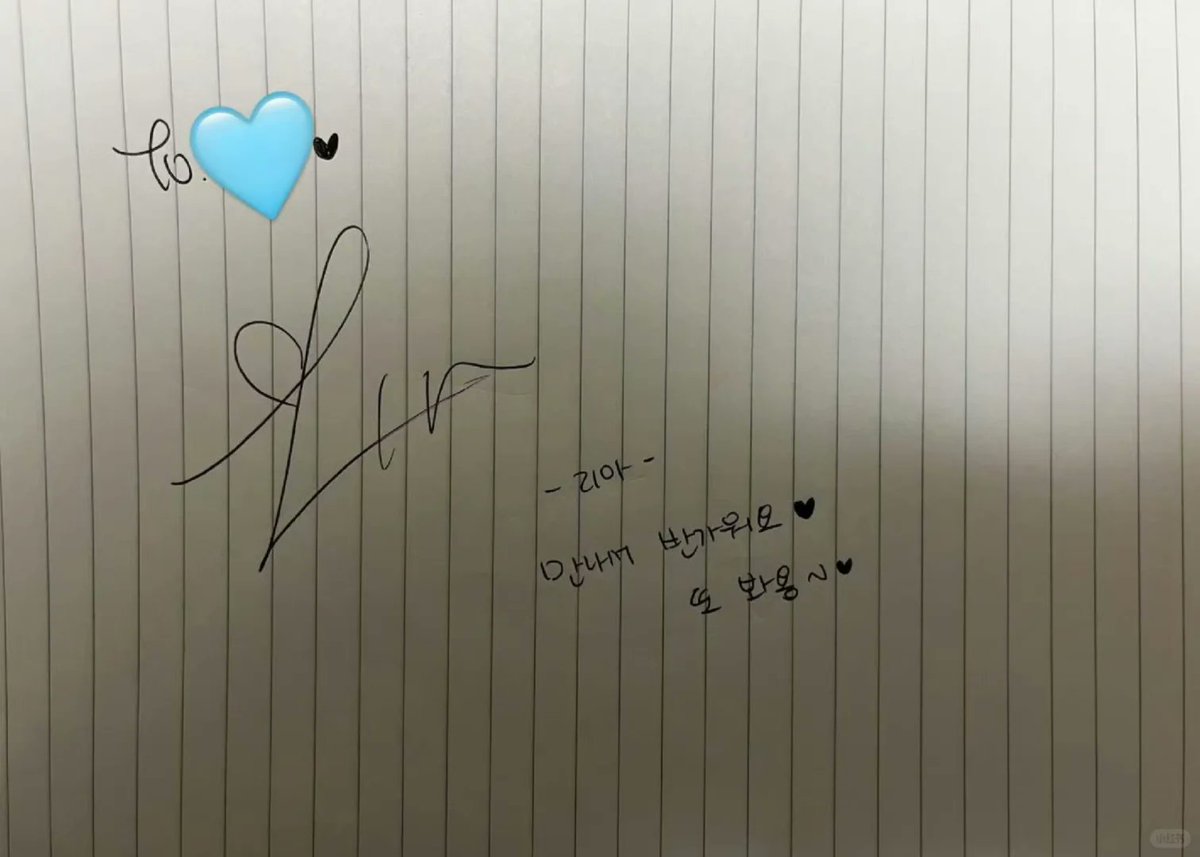 to. ♥
- 리아 -
만나서 반가워요 ♥
또 봐용~♥